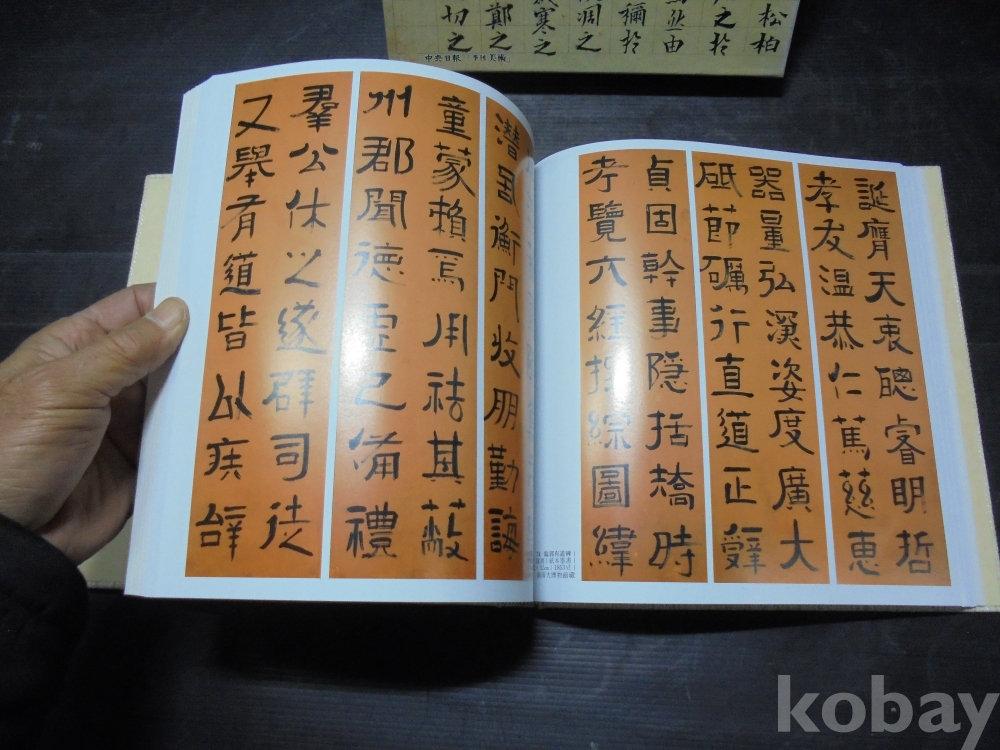 松柏
之於
由
彌於
凋之
寒之
鄭之
切之
中央日報 「季刊美術」
誕膺天衷聰睿明哲
孝友温恭仁篤慈惠
器量弘深姿度廣大
砥節礪行直道正辭
貞固幹事隱括矯時
考覽六經探綜圖緯
潛居衡門收朋勤誨
童蒙賴焉用祛其蔽
州郡聞德虛己備禮
羣公休之遂辟司徒
又舉有道皆以疾辭
臨郭有道碑
紙本墨書
博物館藏
kobay